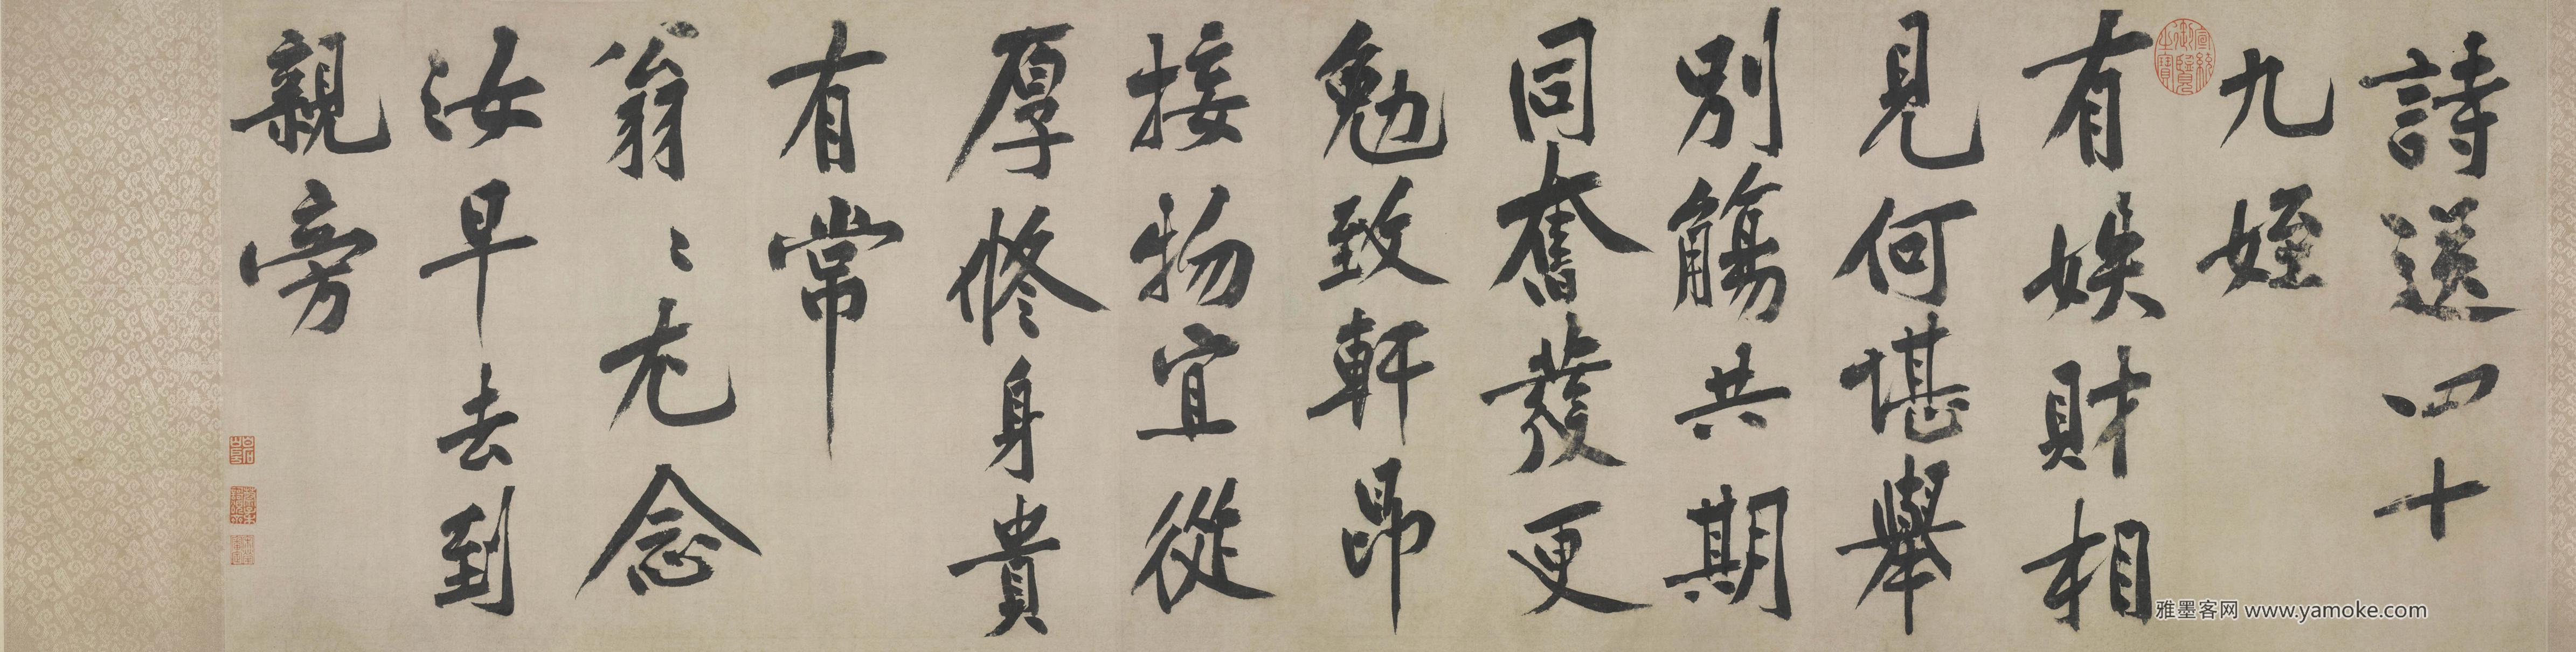 詩送四十
九姪
有娭財相
見何堪舉
別觴共期
同奮發更
勉致軒昂
接物宜從
厚脩身貴
有常
翁〻尤念
汝早去到
親旁
宣統御覽之寶
雅墨客网 www.yamoke.com